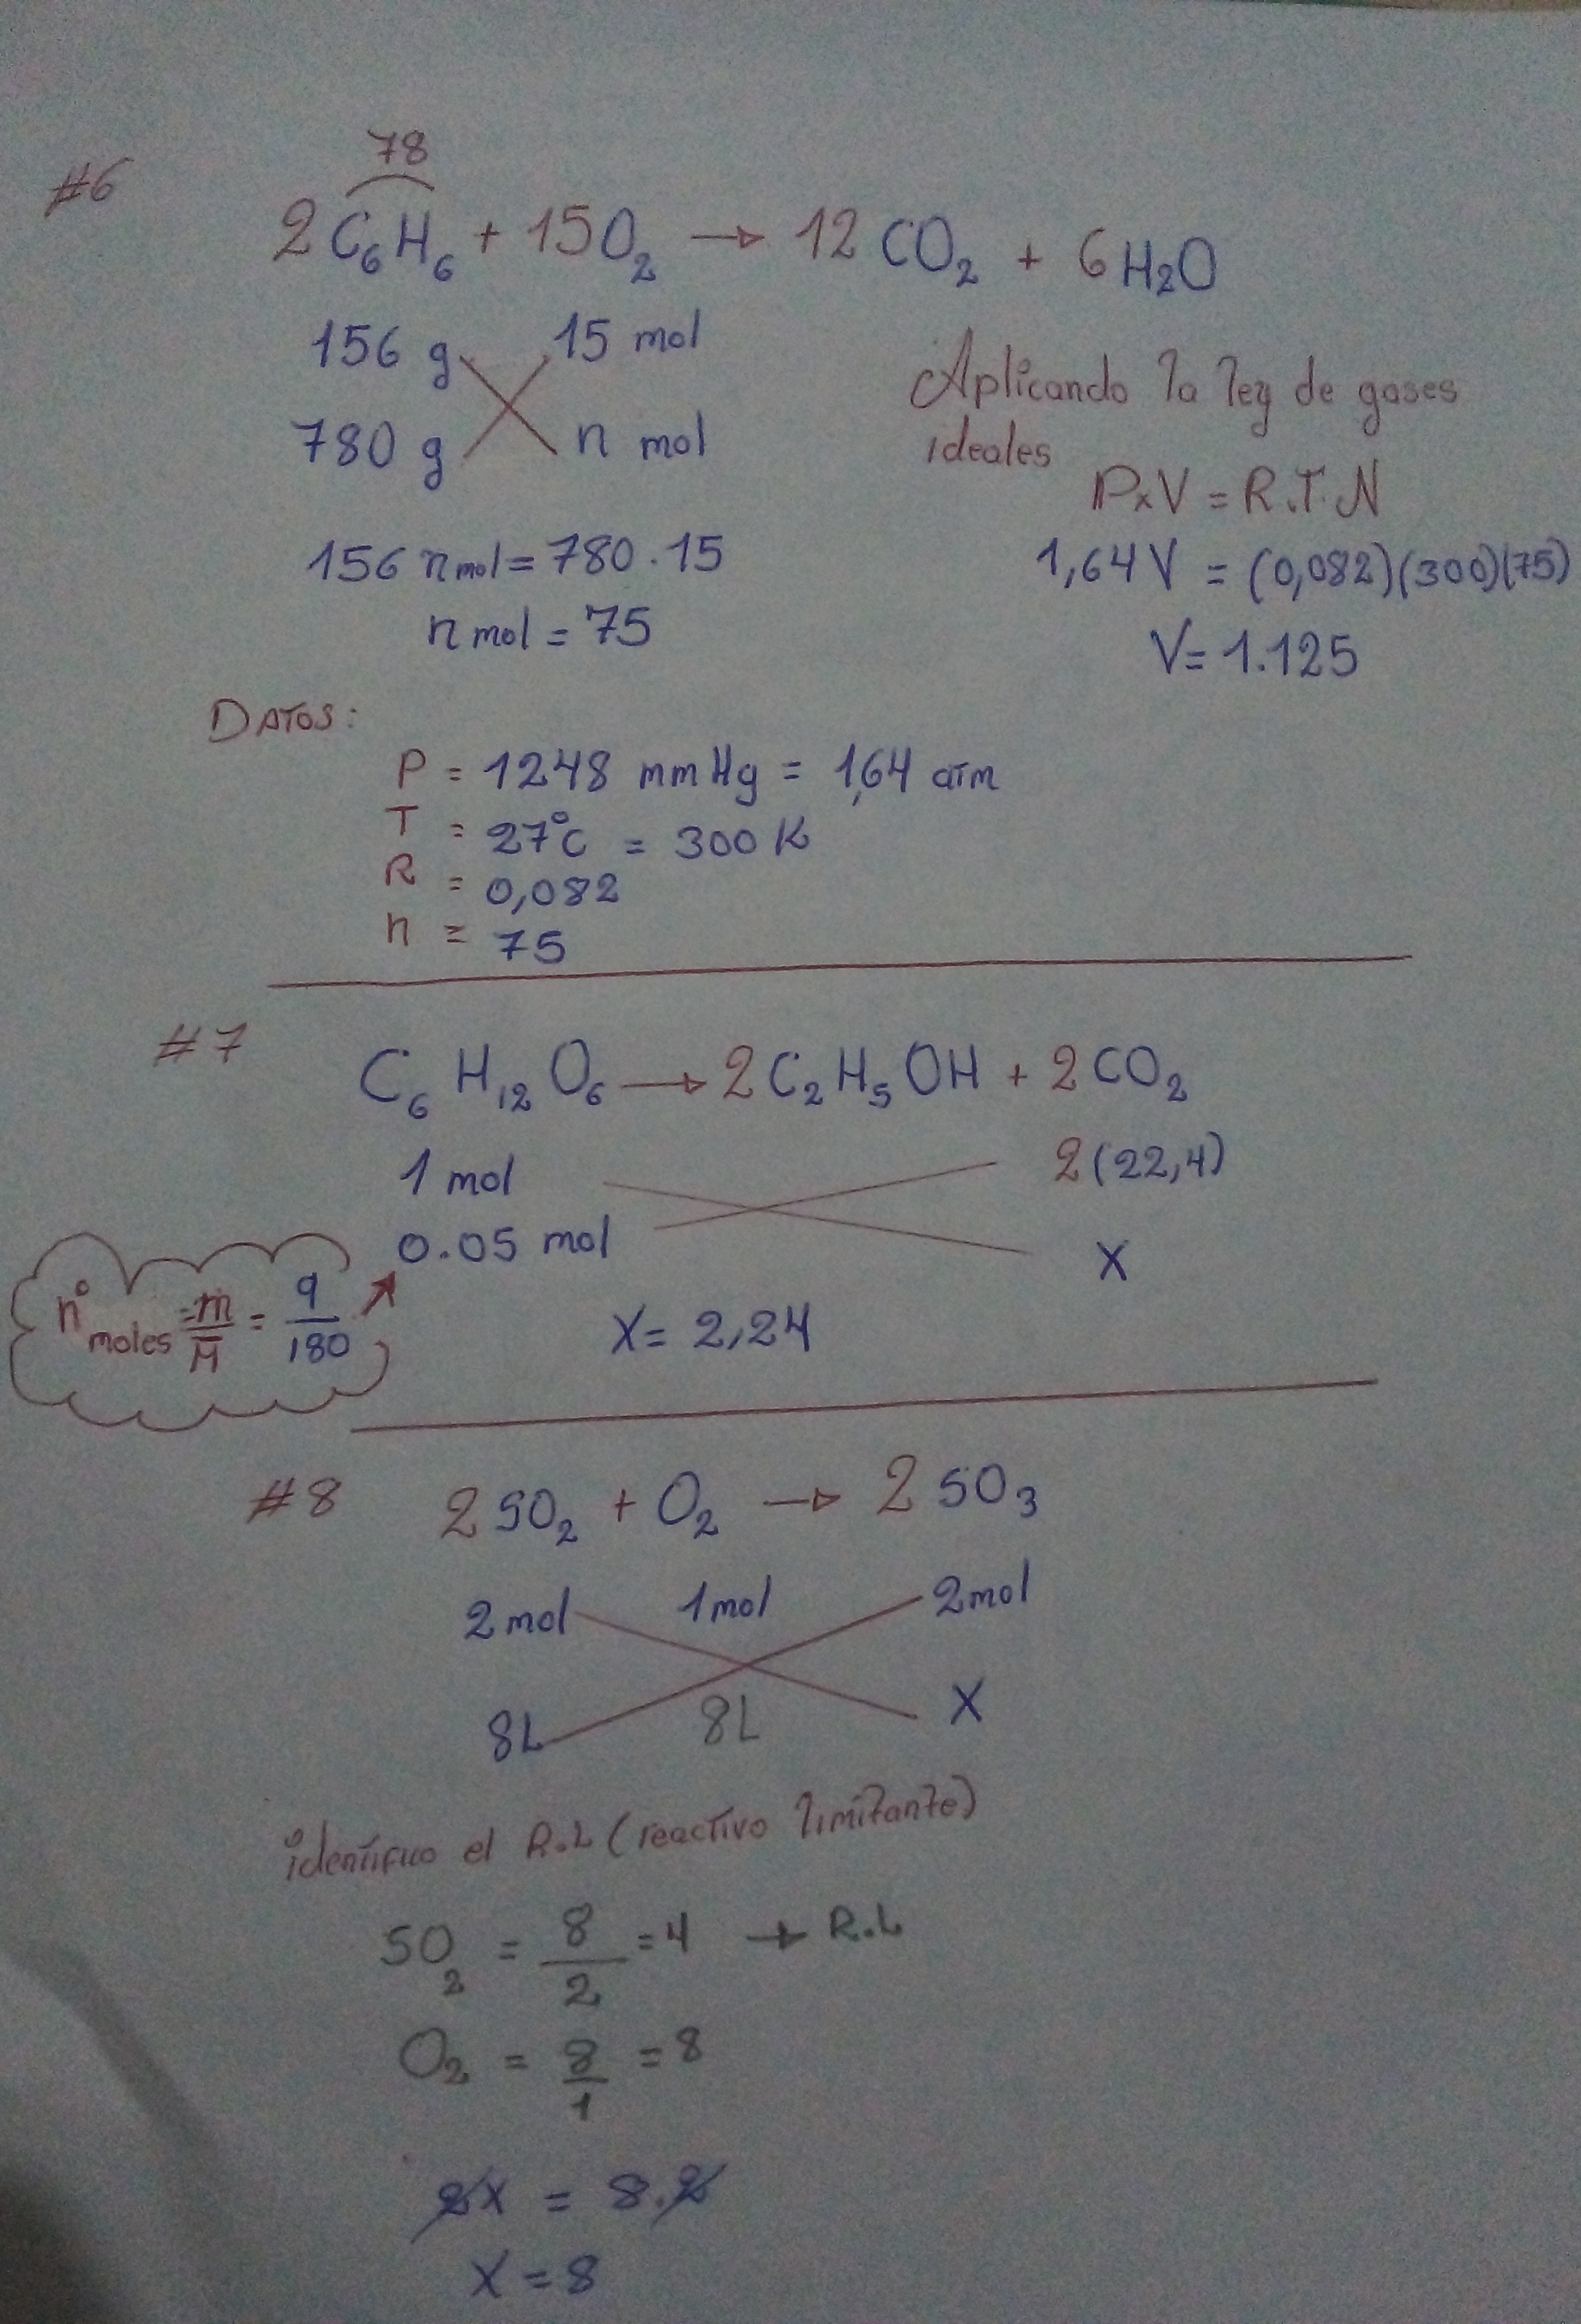 #6
78
2C₆H₆ + 15O₂ → 12CO₂ + 6H₂O
156 g 15 mol
780 g n mol
156 n mol = 780 . 15
n mol = 75
Aplicando la ley de gases
ideales
P x V = R.T.N
1,64V = (0,082)(300)(75)
V = 1.125
DATOS:
P = 1248 mmHg = 1,64 atm
T = 27°C = 300 K
R = 0,082
n = 75
#7
C₆H₁₂O₆ → 2C₂H₅OH + 2CO₂
1 mol 2(22,4)
0.05 mol X
n° moles = m/M̅ = 9/180
X = 2,24
#8
2SO₂ + O₂ → 2SO₃
2mol 1mol 2mol
8L 8L X
identifico el R.L (reactivo limitante)
SO₂ = 8/2 = 4 → R.L
O₂ = 8/1 = 8
2X = 8.2
X = 8